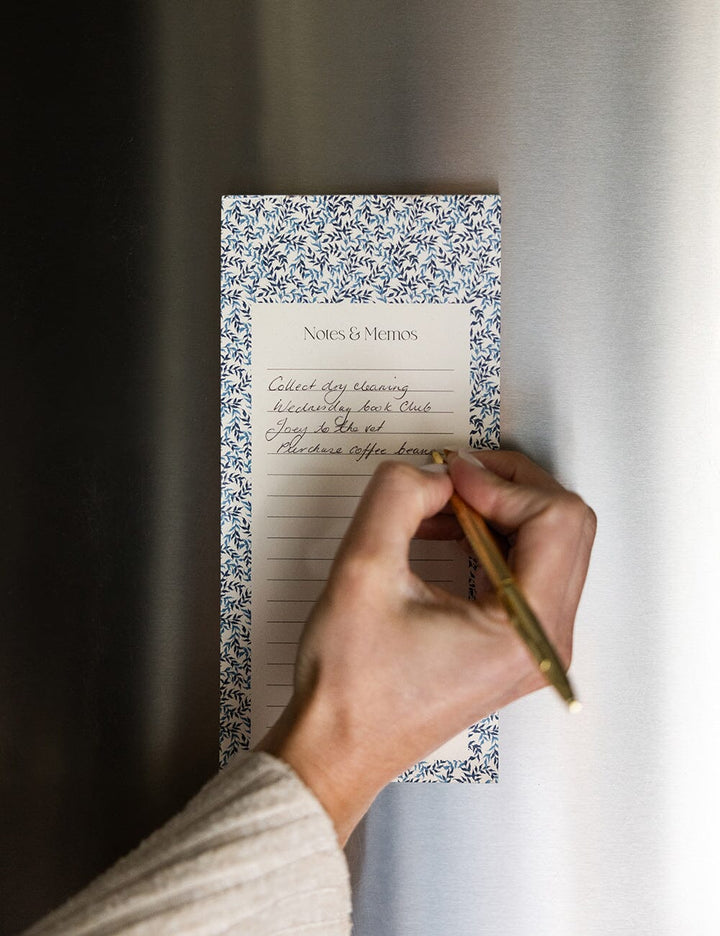 Notes & Memos
Collect dry cleaning
Wednesday book Club
Joey to the vet
Purchase coffee beans